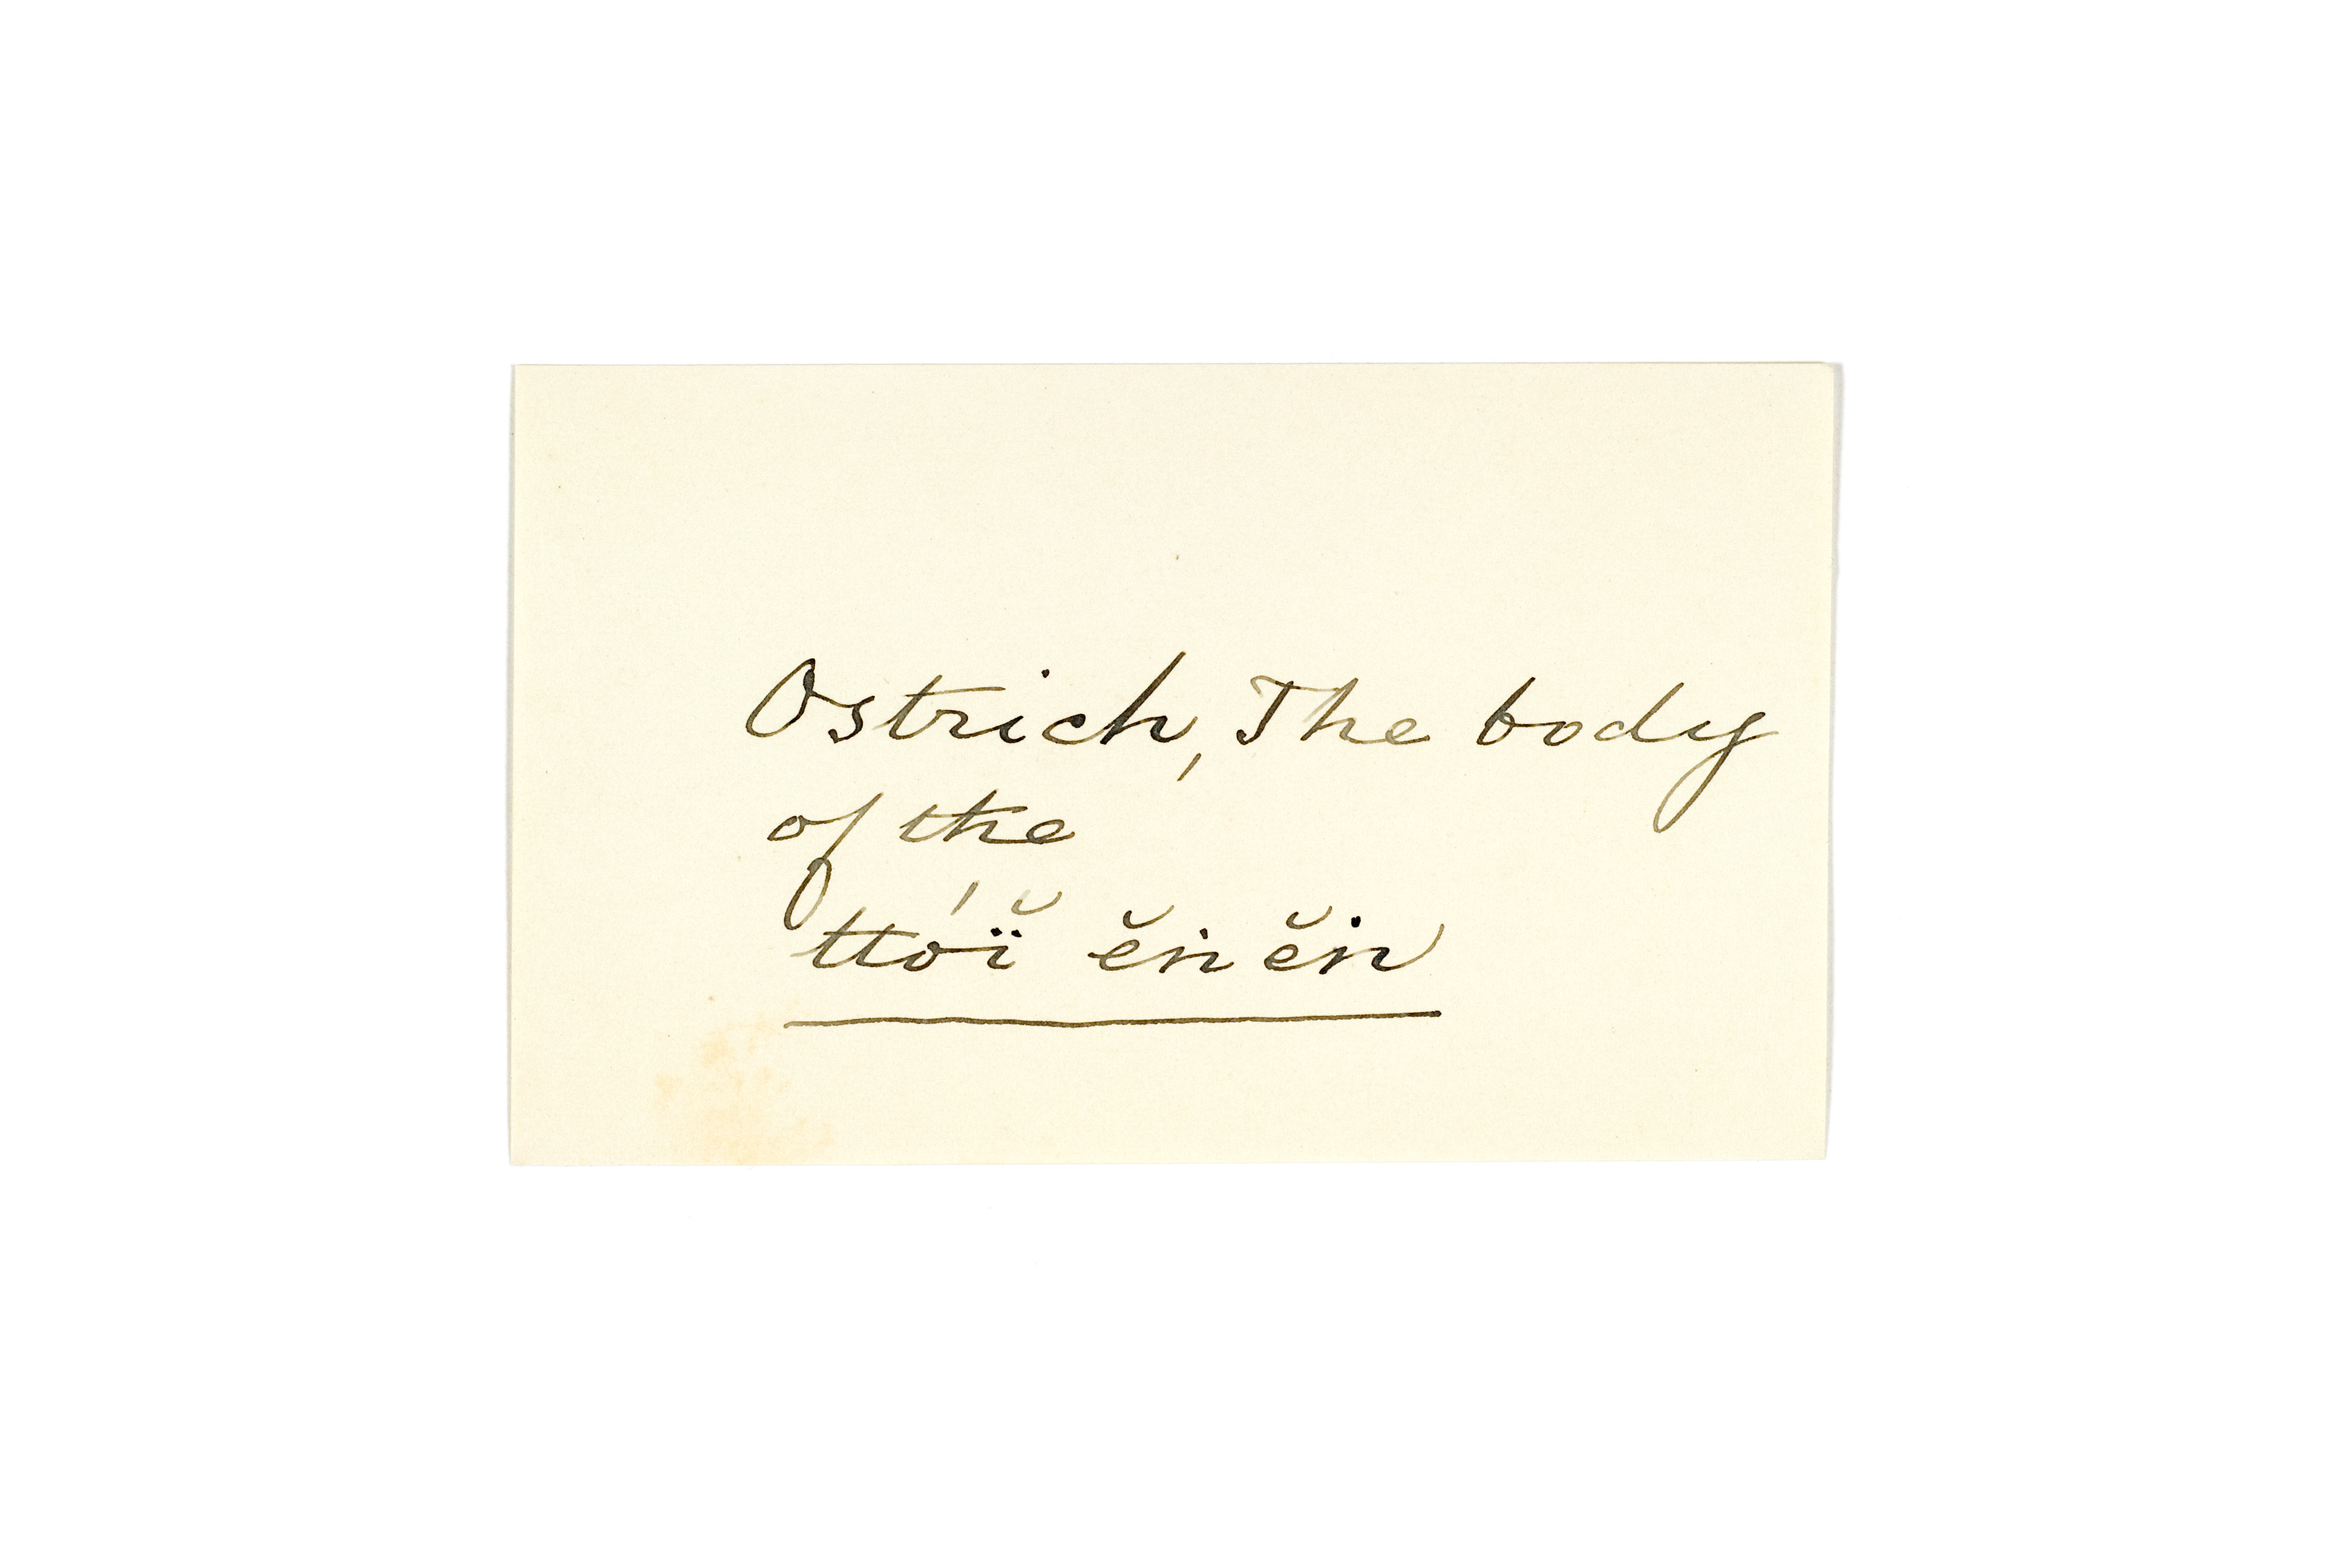 Ostrich, The body
of the
ttóĭ̤ ĕn ĕn